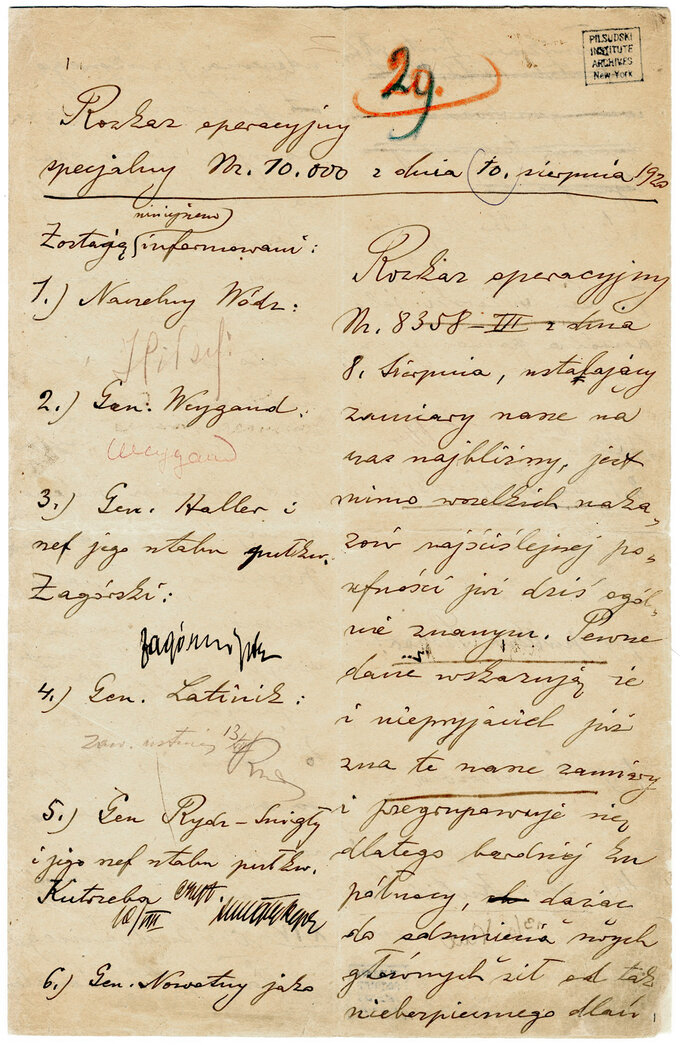 PILSUDSKI
INSTITUTE
ARCHIVES
New-York
29.
Rozkaz operacyjny
specjalny Nr. 10.000 z dnia 10. sierpnia 1920
niniejszem
Zostają informowani:
1.) Naczelny Wódz:
2.) Gen. Weygand:
Weygand
3.) Gen. Haller i
szef jego sztabu pułkw.
Zagórski:
Zagórski płk
4.) Gen. Latinik:
zaw. ustnie 13/VIII
5.) Gen Rydz-Śmigły
i jego szef sztabu pułkw.
Kutrzeba
10/VIII
6.) Gen. Nowotny jako
Rozkaz operacyjny
Nr. 8358-III z dnia
8. Sierpnia, ustalający
zamiary nasze na
czas najbliższy, jest
mimo wszelkich naka-
zów najściślejszej po-
ufności już dziś ogól-
nie znanym. Pewne
dane wskazują że
i nieprzyjaciel już
zna te nasze zamiary
i przegrupowuje się
dlatego bardziej ku
północy, dążąc
do odsunięcia swych
głównych sił od tak
niebezpiecznego dlań